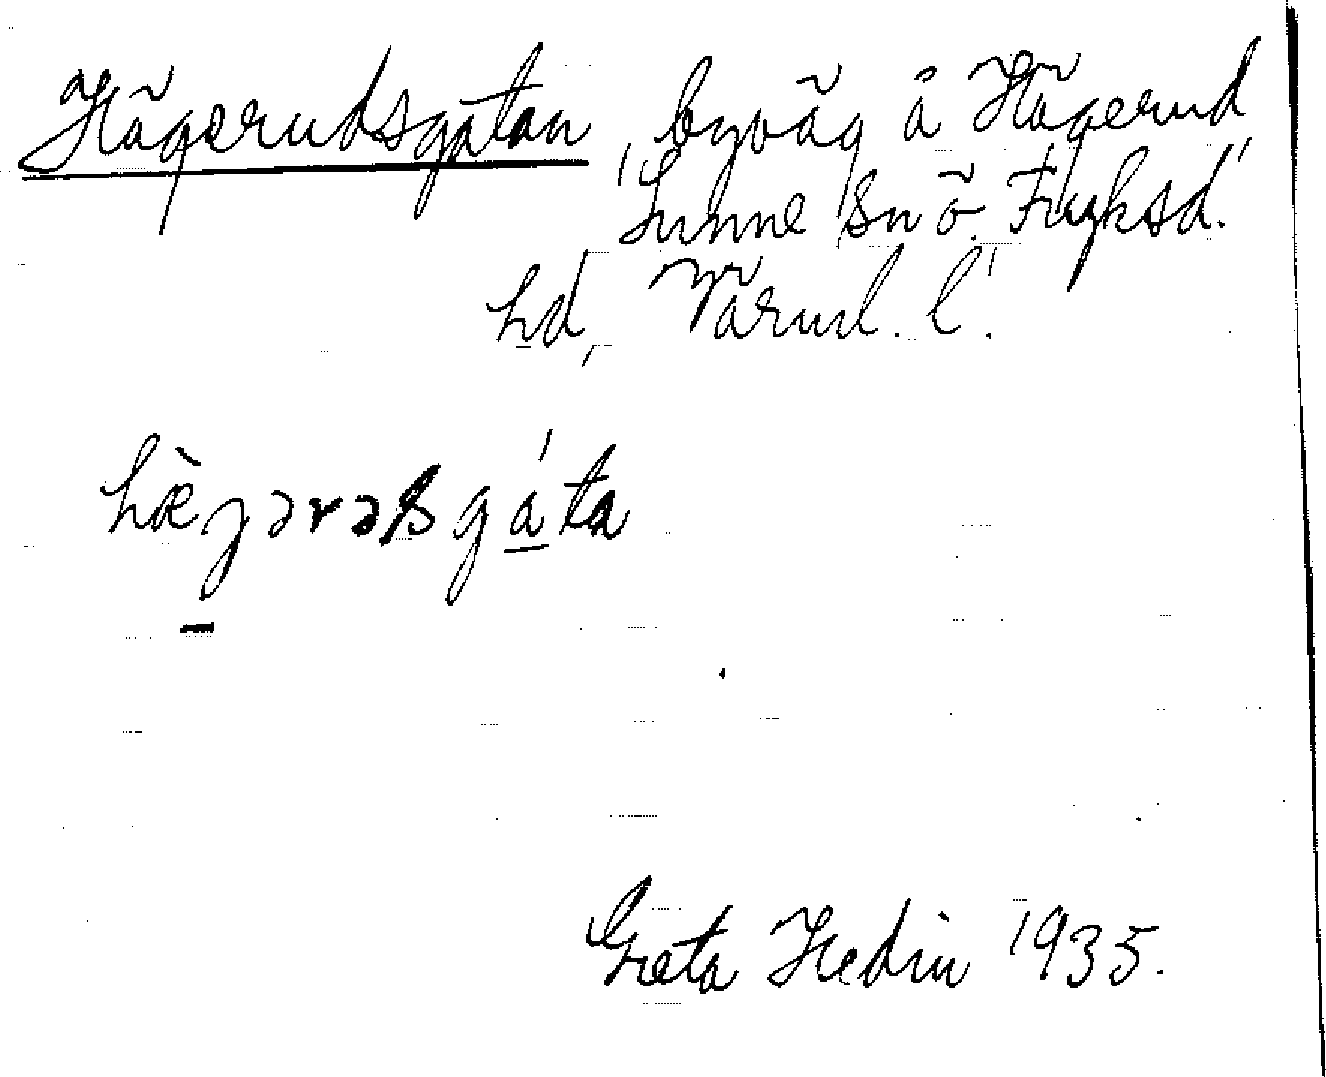 Hägerudsgatan, byväg å Hägerud,
Sunne sn ö. Fryksd.
hd, Värml. l.
hæ̀gərəsgáta
Greta Hedin 1935.